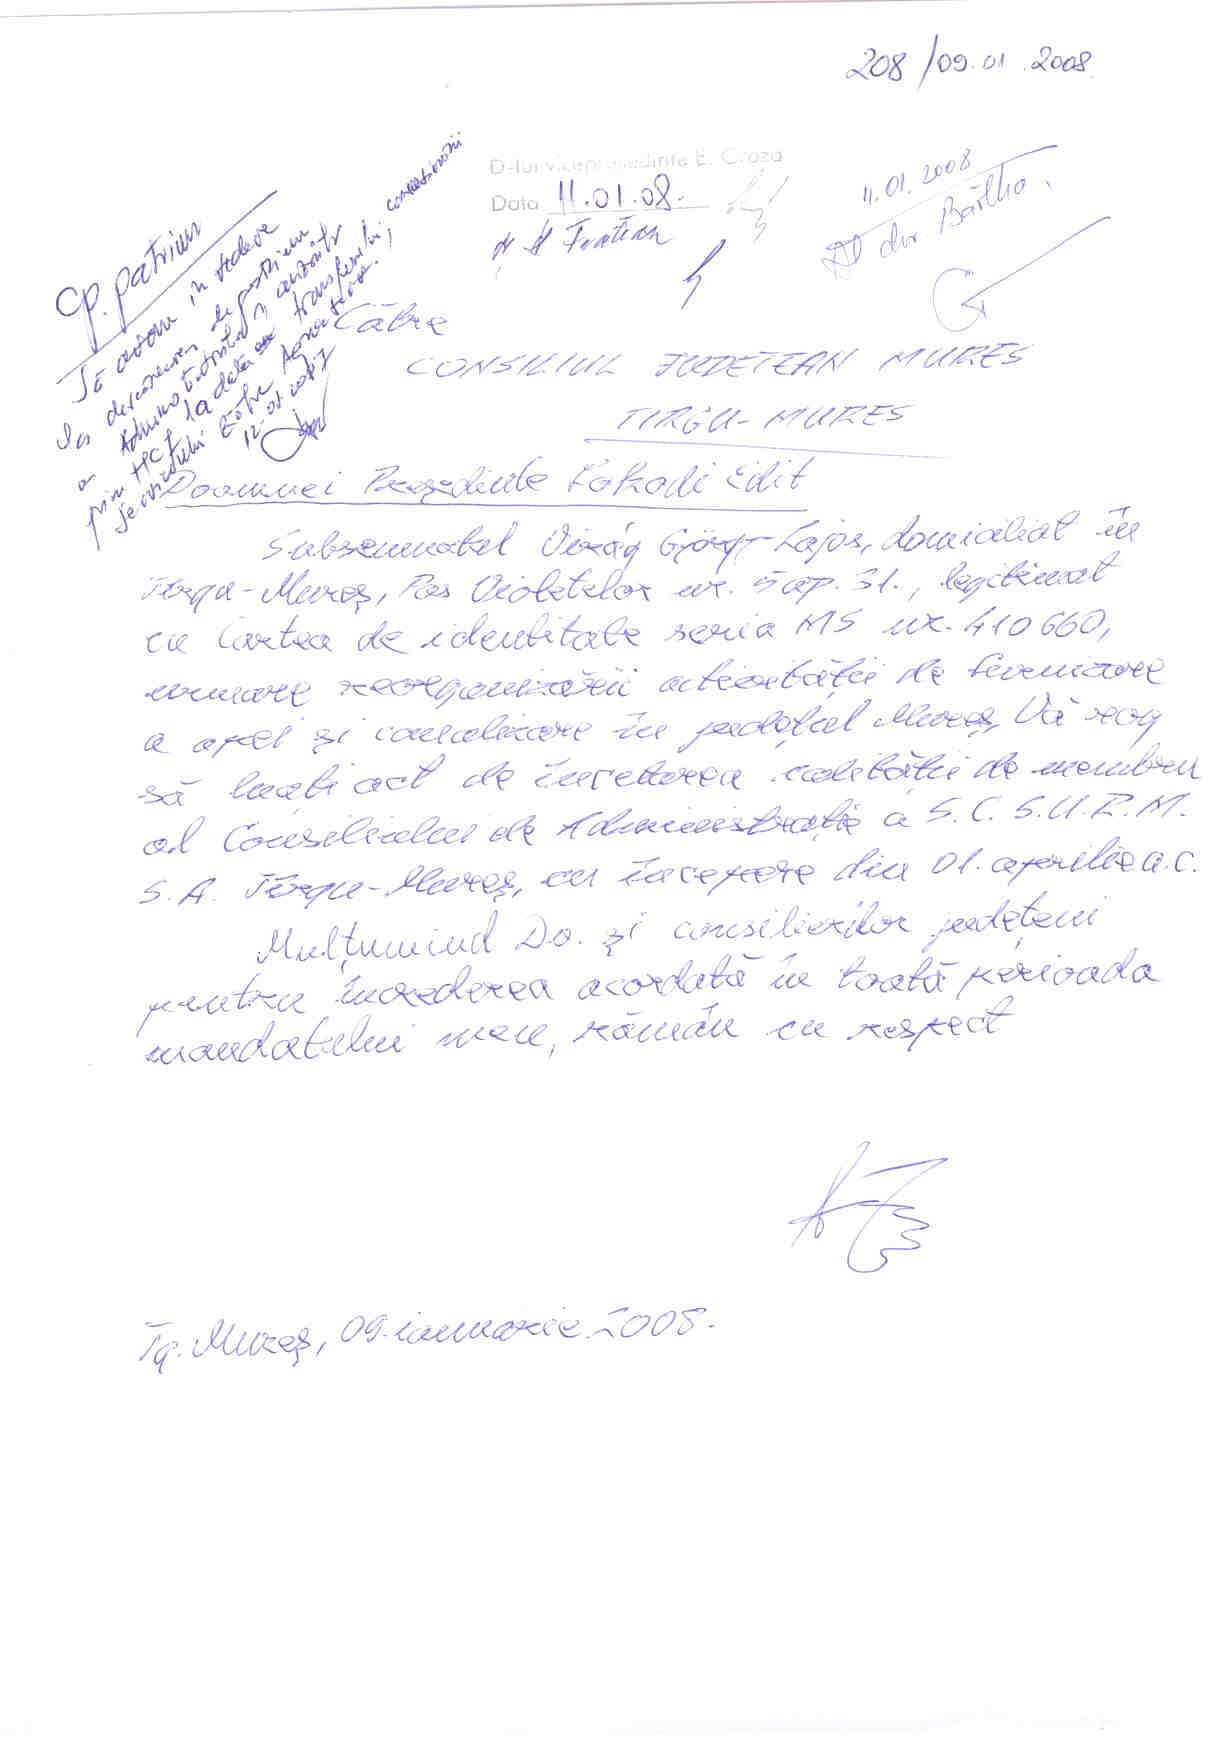 208/09.01.2008
D-lui vicepreședinte E. Groza
Data 11.01.08.
11.01.2008
Bartha.
Cp. patrim
Se va avea în vedere
la descărcarea de
prin HCJ la data transferului
serviciului către
Către
CONSILIUL JUDETEAN MURES
TIRGU-MURES
Doamnei Președinte Lokodi Edit
Subsemnatul Virág György-Lajos, domiciliat în
Tîrgu-Mureș, Pas Violetelor nr. 5 ap. 31., legitimat
cu Cartea de identitate seria MS nr. 410660,
urmare reorganizării activității de furnizare
a apei și canalizare în județul Mureș, Vă rog
să luați act de încetarea calității de membru
al Consiliului de Administrație a S.C. S.U.R.M.
S.A. Tîrgu-Mureș, cu începere din 01. aprilie a.c.
Mulțumind Dv. și consilierilor județeni
pentru încrederea acordată în toată perioada
mandatului meu, rămân cu respect
Tg. Mureș, 09. ianuarie. 2008.